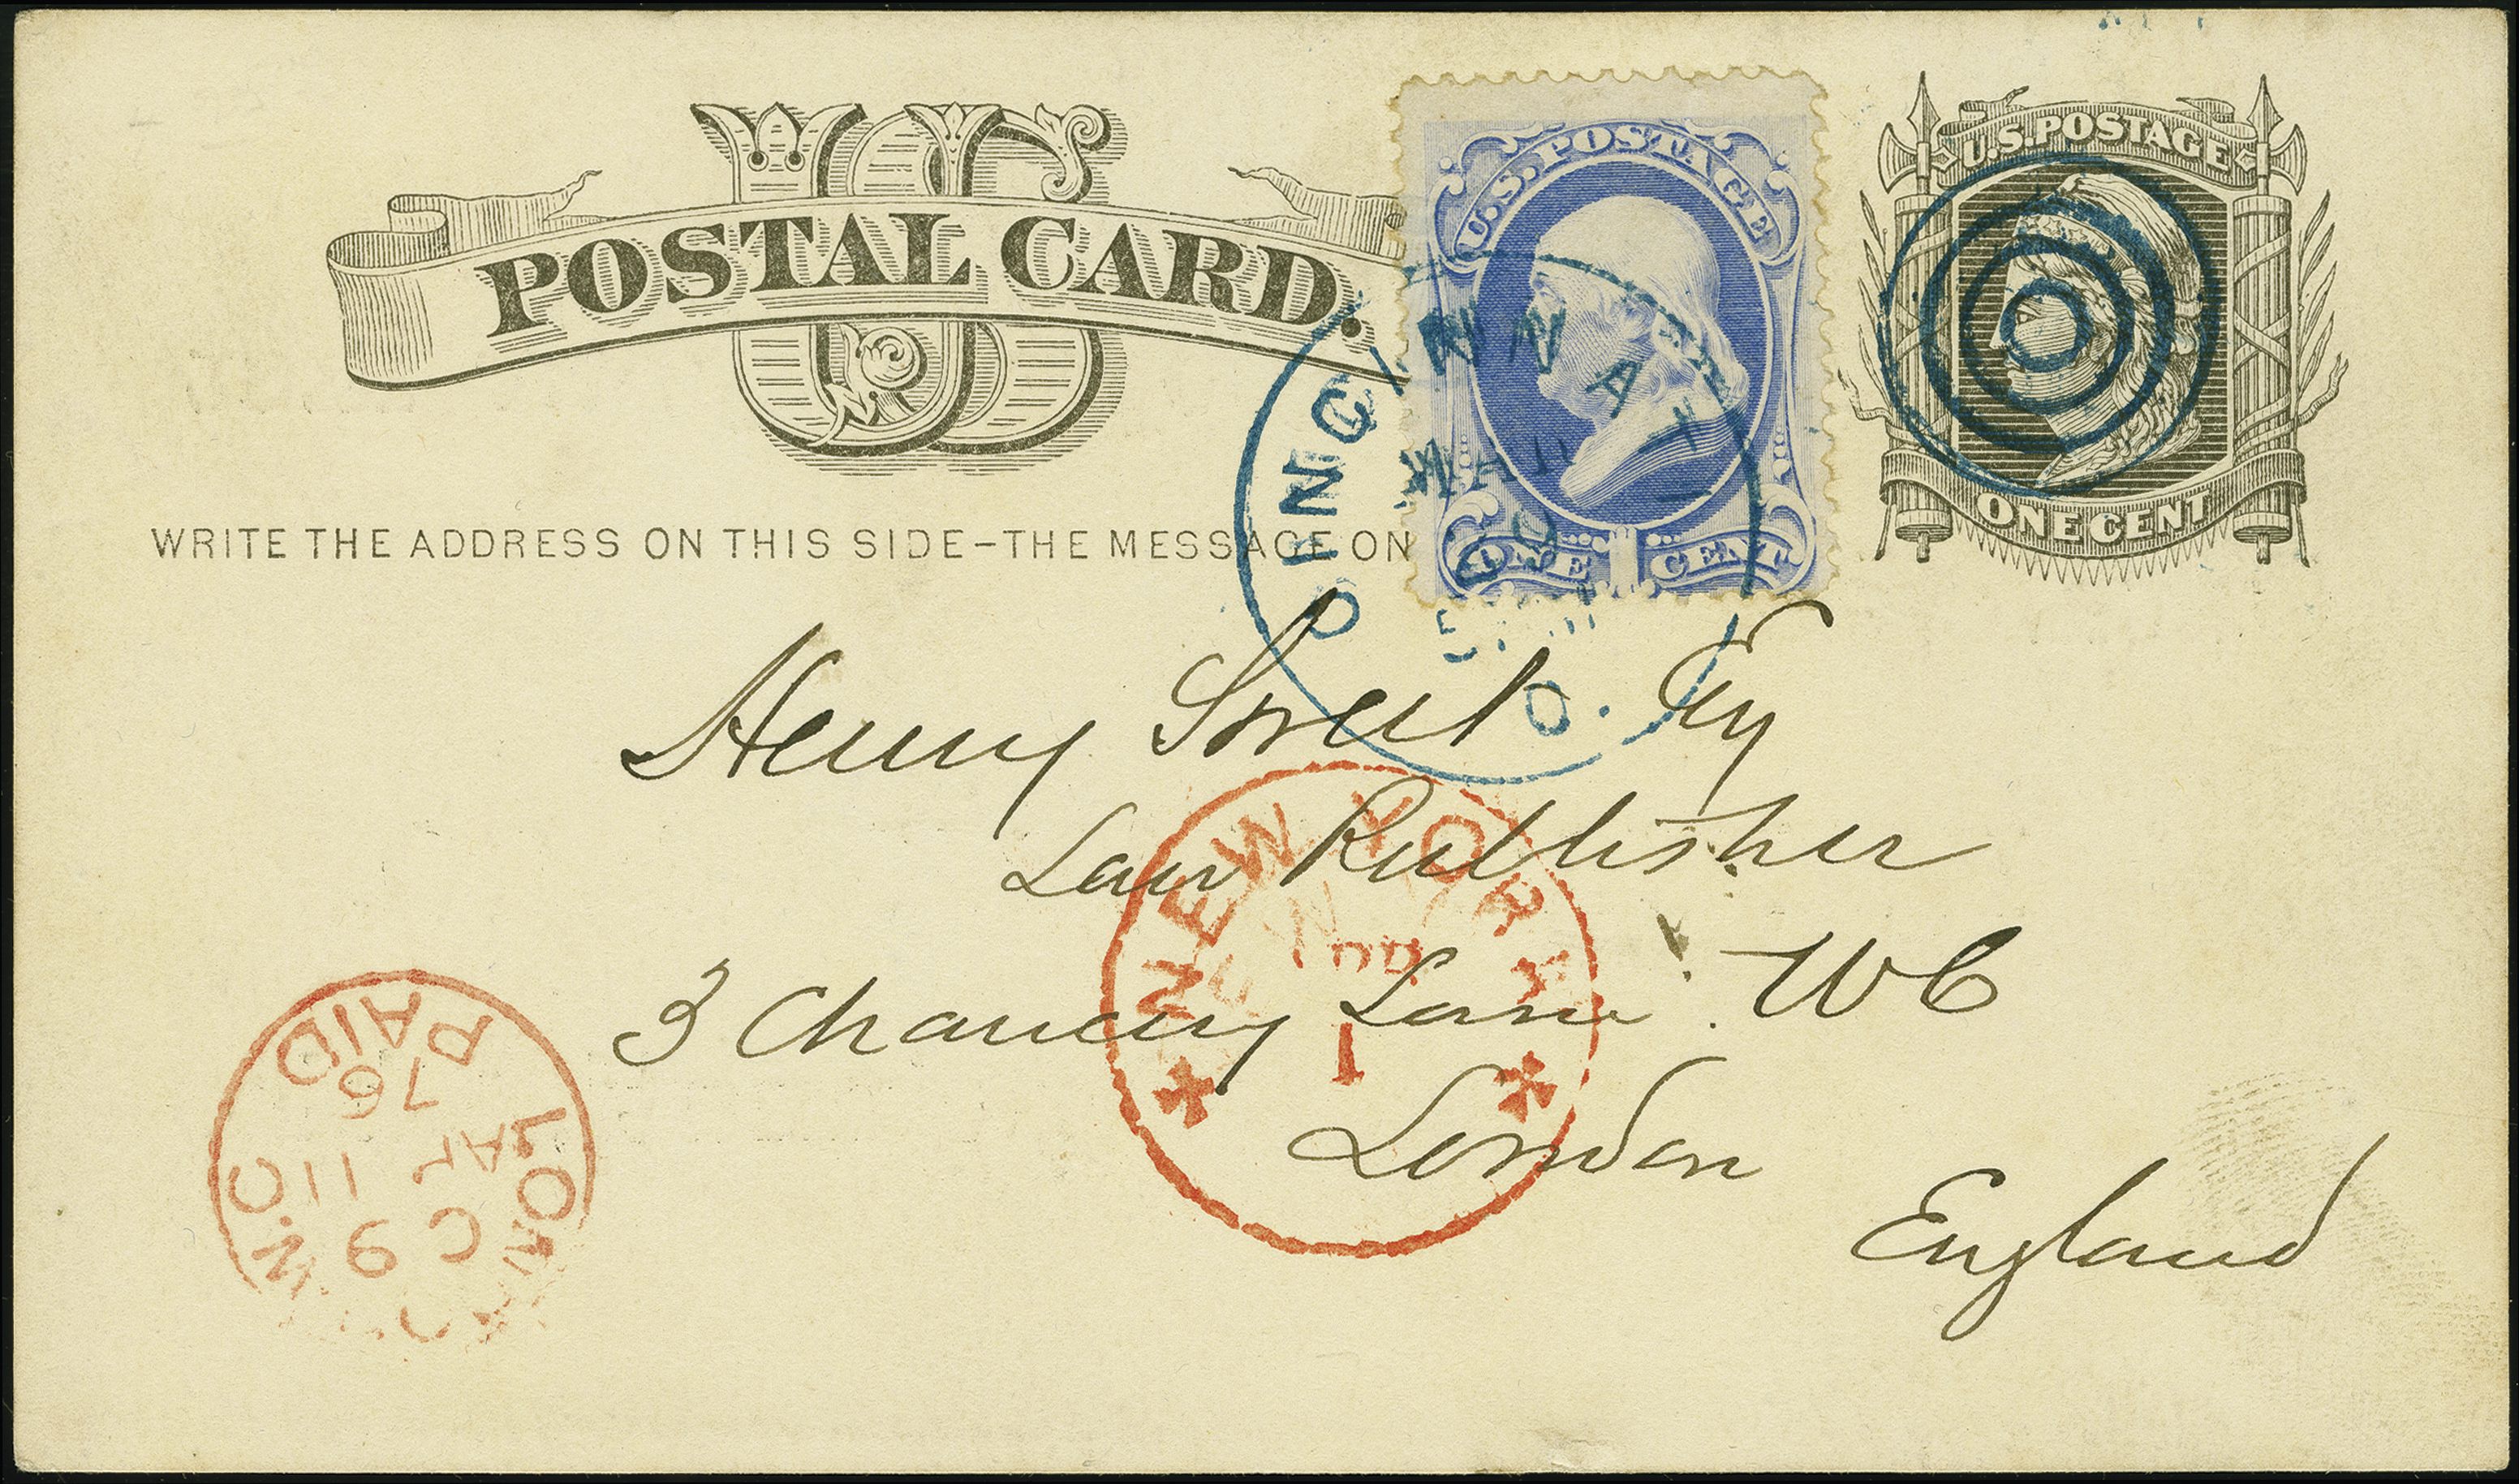 US
POSTAL CARD.
U.S. POSTAGE
ONE CENT
U.S. POSTAGE
ONE CENT
WRITE THE ADDRESS ON THIS SIDE-THE MESSAGE ON
CINCINNATI
O.
Henry Sweet Esq
Law Publisher
3 Chancery Lane. WC
London
England
NEW YORK
APR
1
LONDON W.C
C 9
AP 11
76
PAID